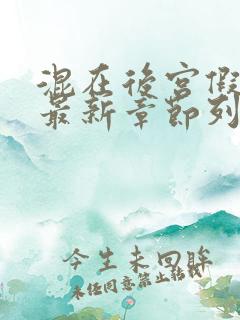 混在後宮假
最新章節列
今生未回眸
未經同意禁止轉載